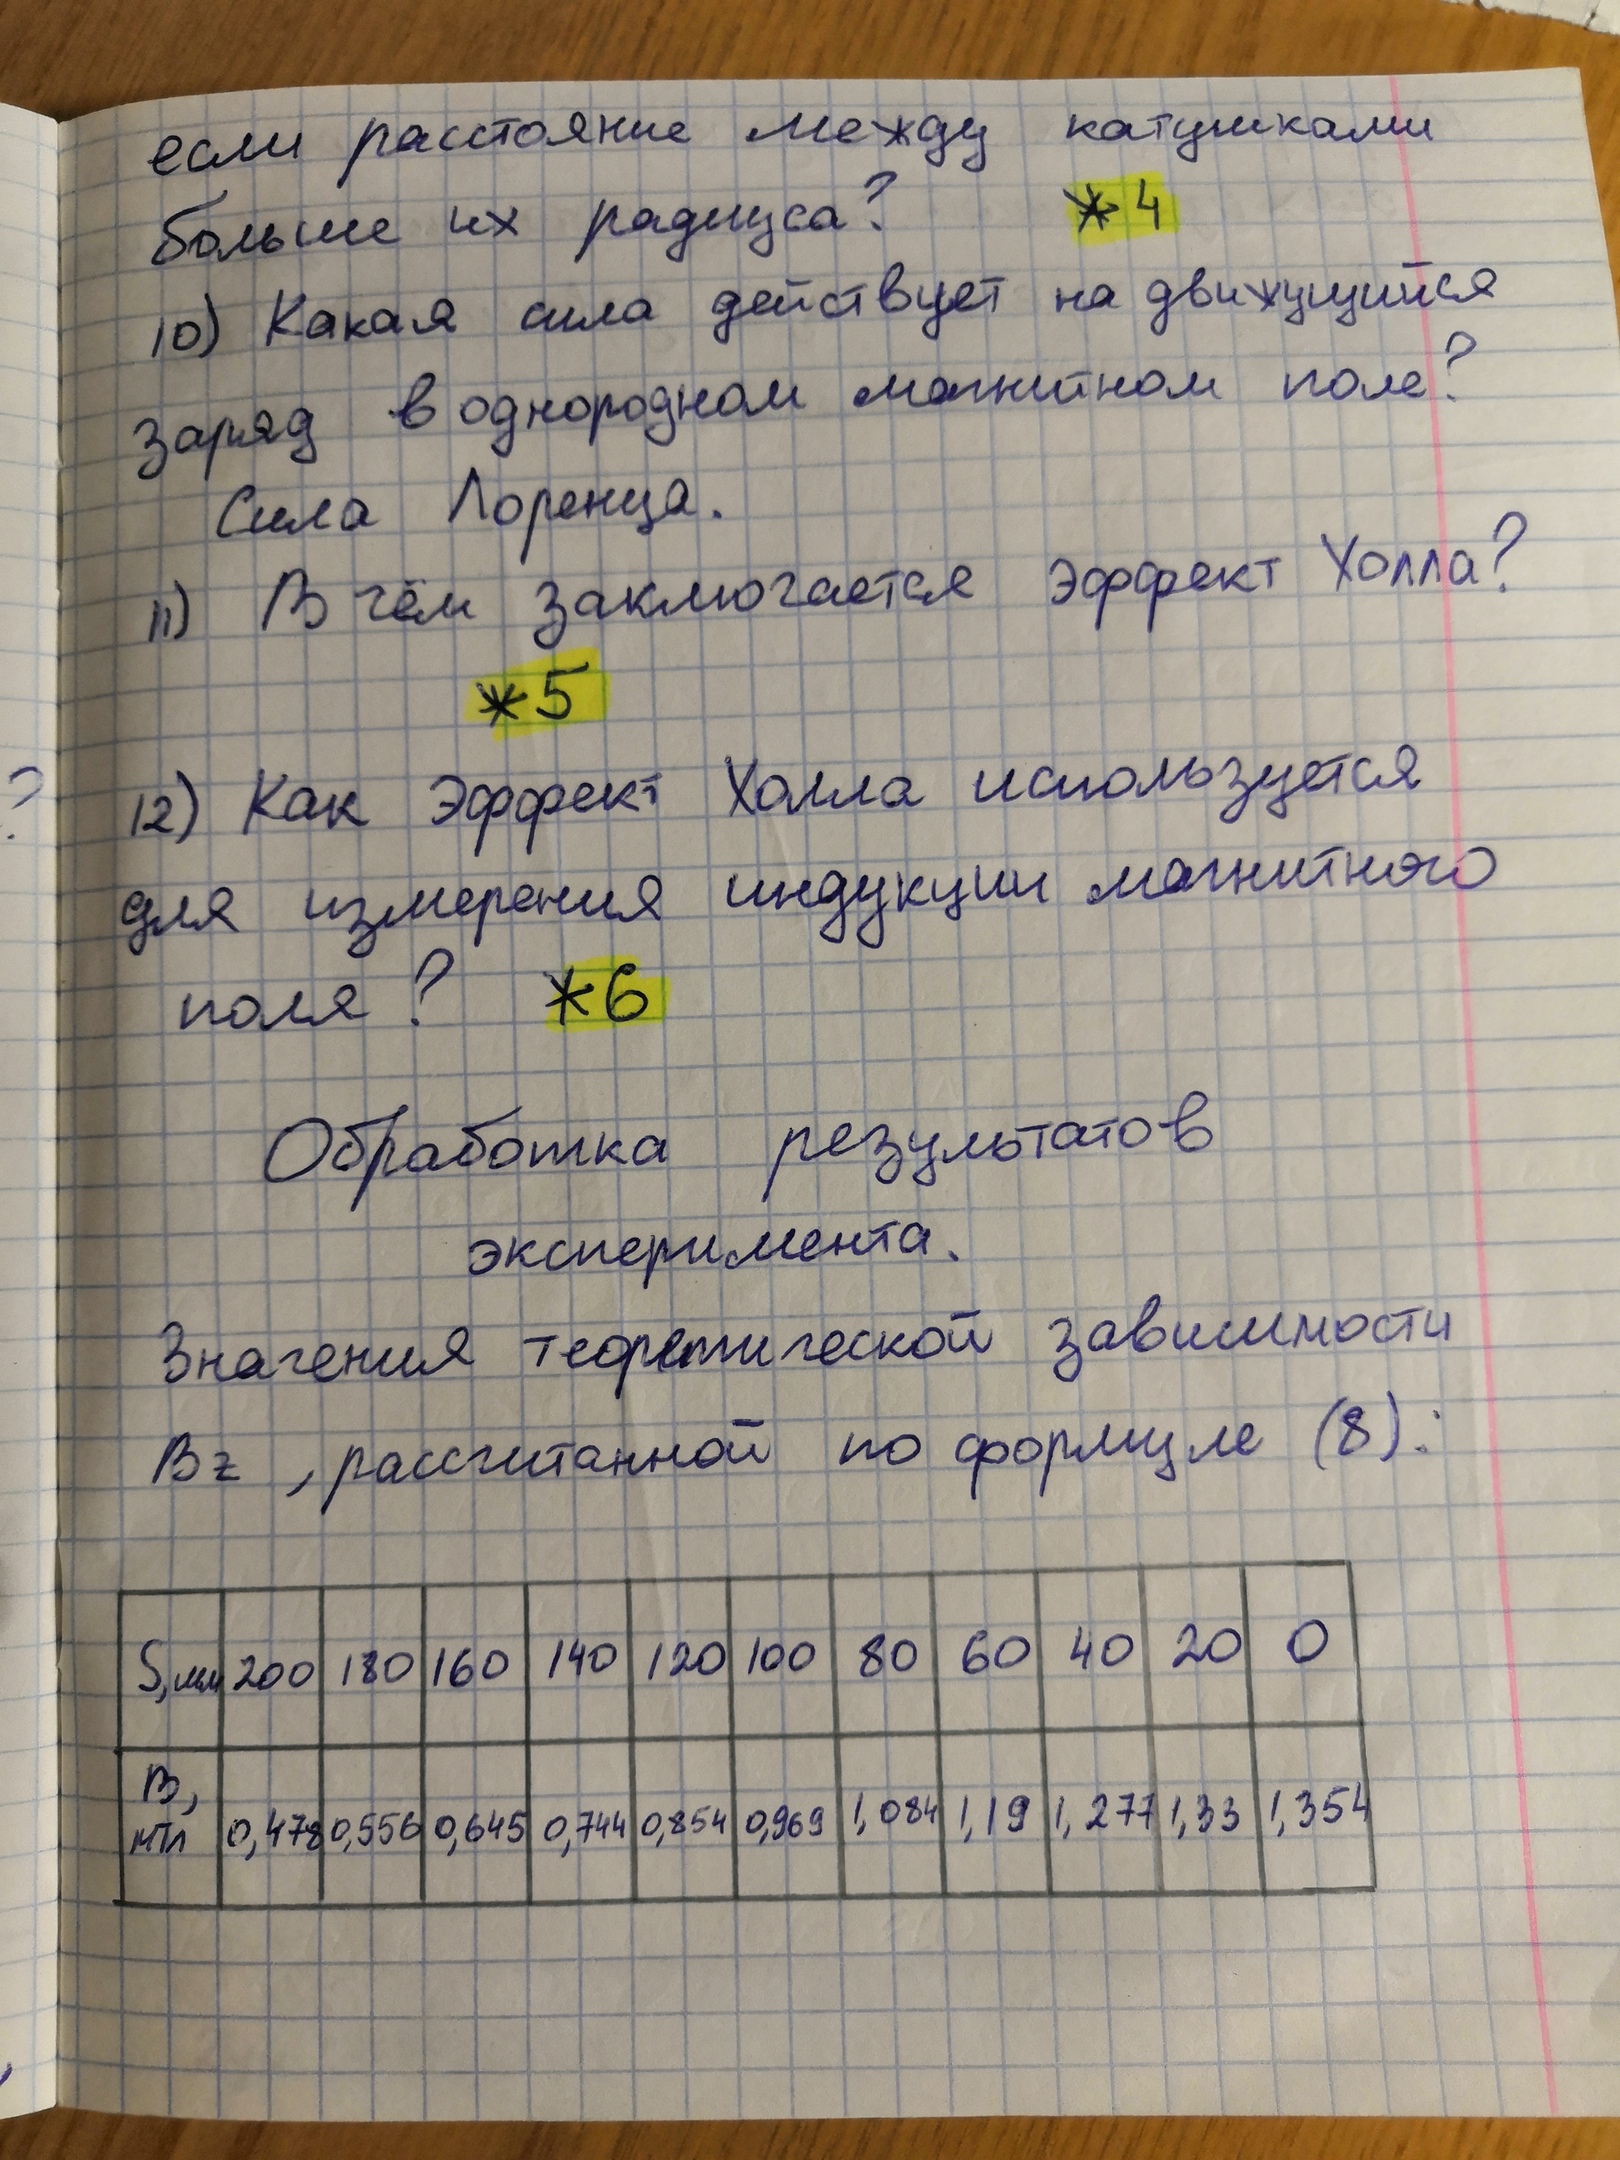 если расстояние между катушками
больше их радиуса? *4
10) Какая сила действует на движущийся
заряд в однородном магнитном поле?
Сила Лоренца.
11) В чём заключается эффект Холла?
*5
12) Как эффект Холла используется
для измерения индукции магнитного
поля? *6
Обработка результатов
эксперимента.
Значения теоретической зависимости
Bz, рассчитанной по формуле (8):
S, мм 200 180 160 140 120 100 80 60 40 20 0
B, мТл 0,478 0,556 0,645 0,744 0,854 0,969 1,084 1,19 1,277 1,33 1,354
?